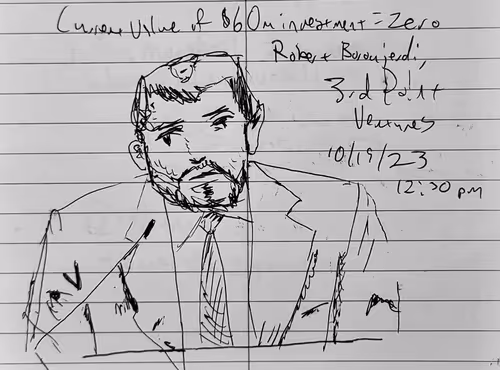 Current Value of $60m investment = Zero
Robert Boroujerdi,
3rd Point
Ventures
10/19/23
12:30 pm